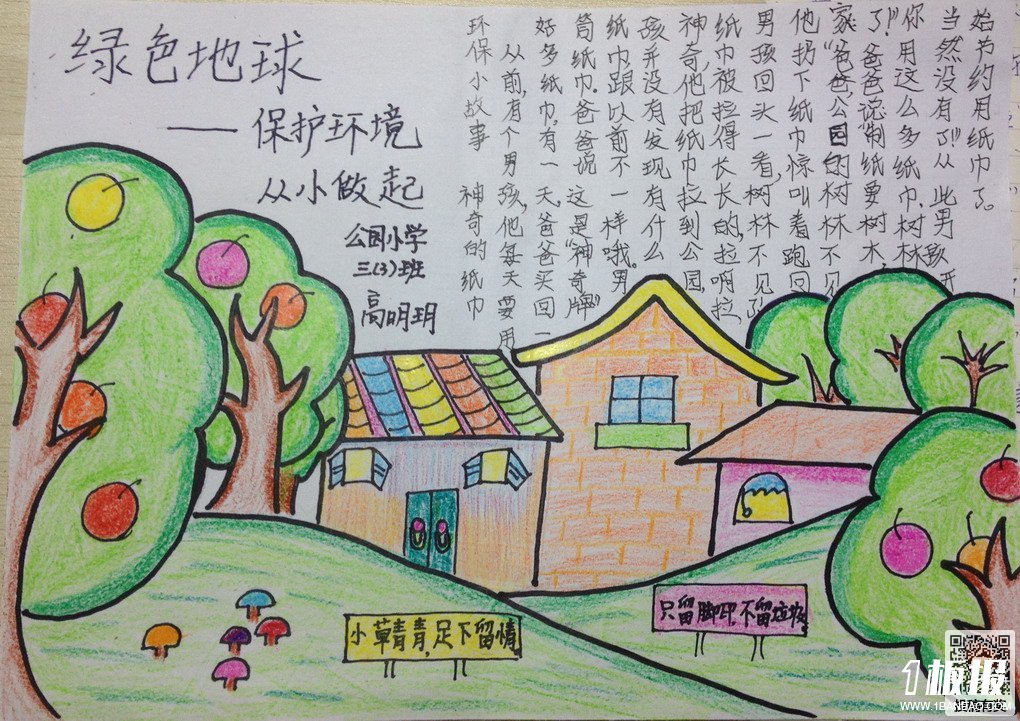 绿色地球
——保护环境
从小做起
公园小学
三(3)班
高明玥
环保小故事 神奇的纸巾
从前,有个男孩,他每天要用
好多纸巾,有一天,爸爸买回一
筒纸巾.爸爸说 这是“神奇牌”
纸巾跟以前不一样哦.男
孩并没有发现有什么
神奇,他把纸巾拉到公园,
纸巾被拉得长长的,拉啊拉,
男孩回头一看,树林不见了
他拐下纸巾惊叫着跑回
家“爸爸,公园的树林不见
了!”爸爸说“制纸要树木,
你用这么多纸巾.树林
当然没有了!”从此男孩开
始节约用纸巾了。
小草青青,足下留情
只留脚印,不留垃圾.
1板报
WWW.1BANBAO.COM